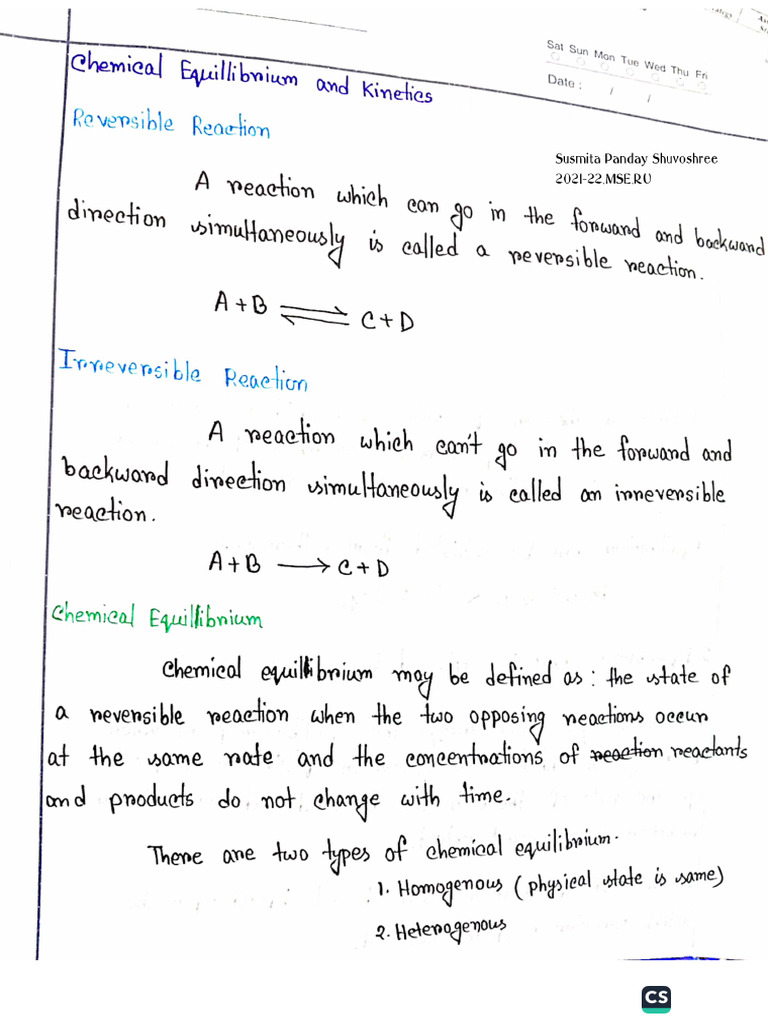 Sat Sun Mon Tue Wed Thu Fri
Date : / /
Chemical Equillibrium and Kinetics
Reversible Reaction
Susmita Panday Shuvoshree
2021-22.MSE.RU
A reaction which can go in the forward and backward
direction simultaneously is called a reversible reaction.
A + B ⇌ C + D
Irreversible Reaction
A reaction which can't go in the forward and
backward direction simultaneously is called an irreversible
reaction.
A + B → C + D
Chemical Equillibrium
Chemical equillibrium may be defined as: the state of
a reversible reaction when the two opposing reactions occur
at the same rate and the concentrations of reaction reactants
and products do not change with time.
There are two types of chemical equilibrium.
1. Homogenous (physical state is same)
2. Heterogenous
CS